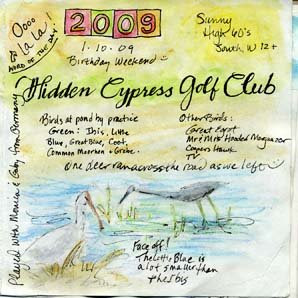 Oooo
La La!
WORD OF THE DAY!
2009
1.10.09
Birthday Weekend
Sunny
High 60's
South, W 12+
Hidden Cypress Golf Club
Birds at pond by practice
Green: Ibis, Little
Blue, Great Blue, Coot,
Common Moorhen + Grebe.
Other Birds:
Great Egret
Mr & Mrs Hooded Merganzer
Coopers Hawk
TV
one deer ran across the road as we left
Played with Monica & Gary from Germany
Face off!
The Little Blue is
a lot smaller than
the Ibis